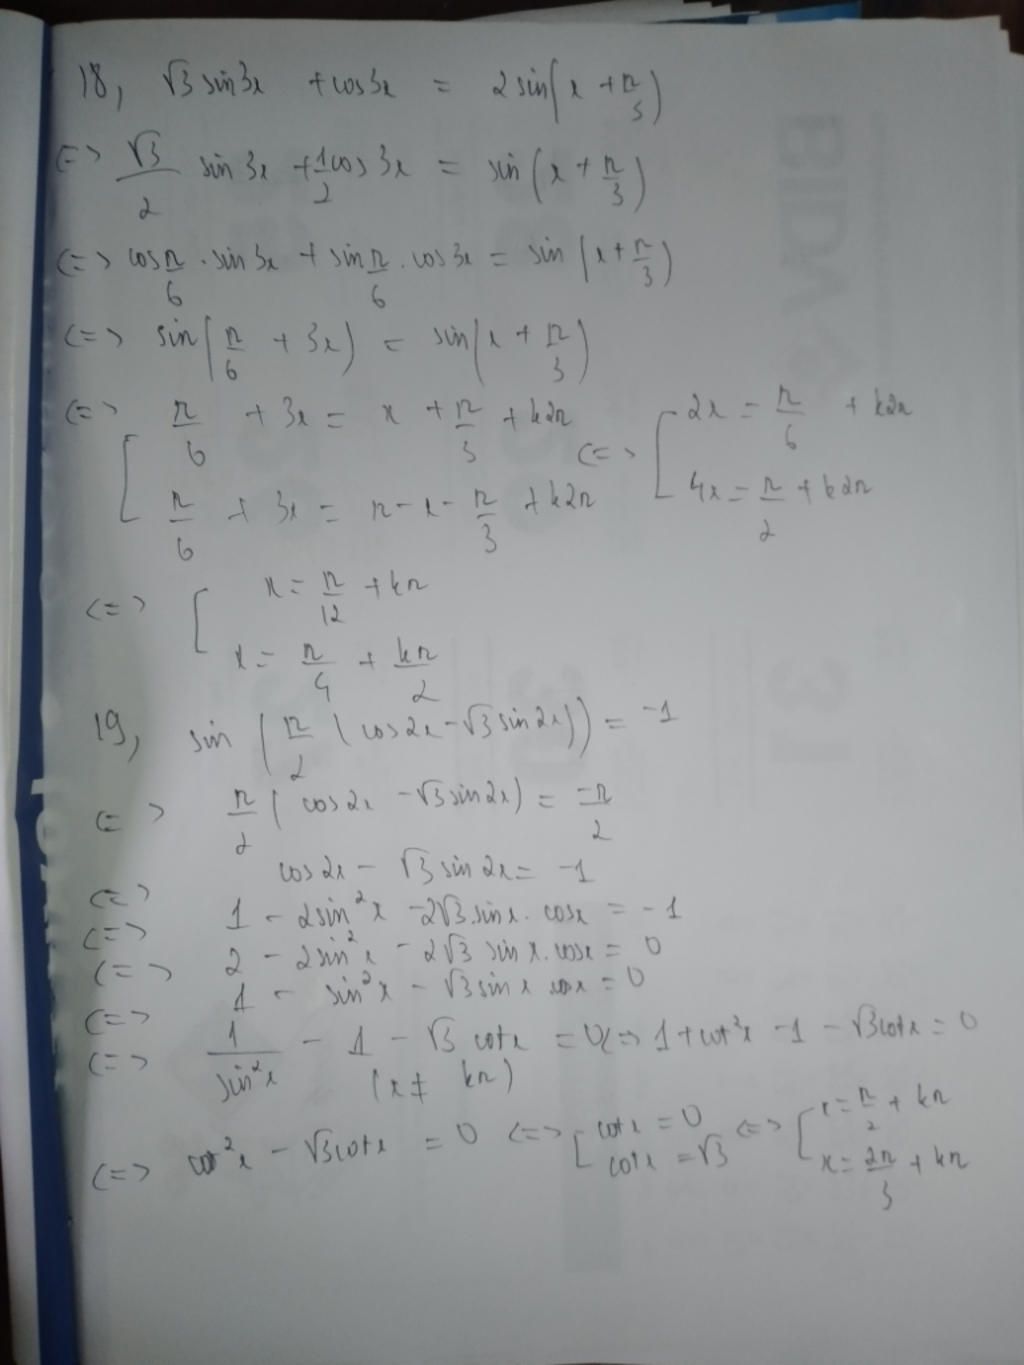 18, √3 sin3x + cos3x = 2sin(x + π/3)
<=> √3/2 sin 3x + 1/2 cos 3x = sin(x + π/3)
<=> cos π/6 . sin 3x + sin π/6 . cos 3x = sin(x + π/3)
<=> sin(π/6 + 3x) = sin(x + π/3)
<=> [ π/6 + 3x = x + π/3 + k2π
π/6 + 3x = π - x - π/3 + k2π
<=> [ 2x = π/6 + k2π
4x = π/2 + k2π
<=> [ x = π/12 + kπ
x = π/4 + kπ/2
19, sin(π/2 (cos2x - √3 sin2x)) = -1
<=> π/2 (cos2x - √3 sin2x) = -π/2
<=> cos2x - √3 sin2x = -1
<=> 1 - 2sin²x - 2√3.sinx.cosx = -1
<=> 2 - 2sin²x - 2√3 sinx.cosx = 0
<=> 1 - sin²x - √3 sinx cosx = 0
<=> 1/sin²x - 1 - √3 cotx = 0 <=> 1 + cot²x - 1 - √3cotx = 0
(x ≠ kπ)
<=> cot²x - √3cotx = 0 <=> [ cotx = 0
cotx = √3
<=> [ x = π/2 + kπ
x = 2π/3 + kπ
BIDV
31
30